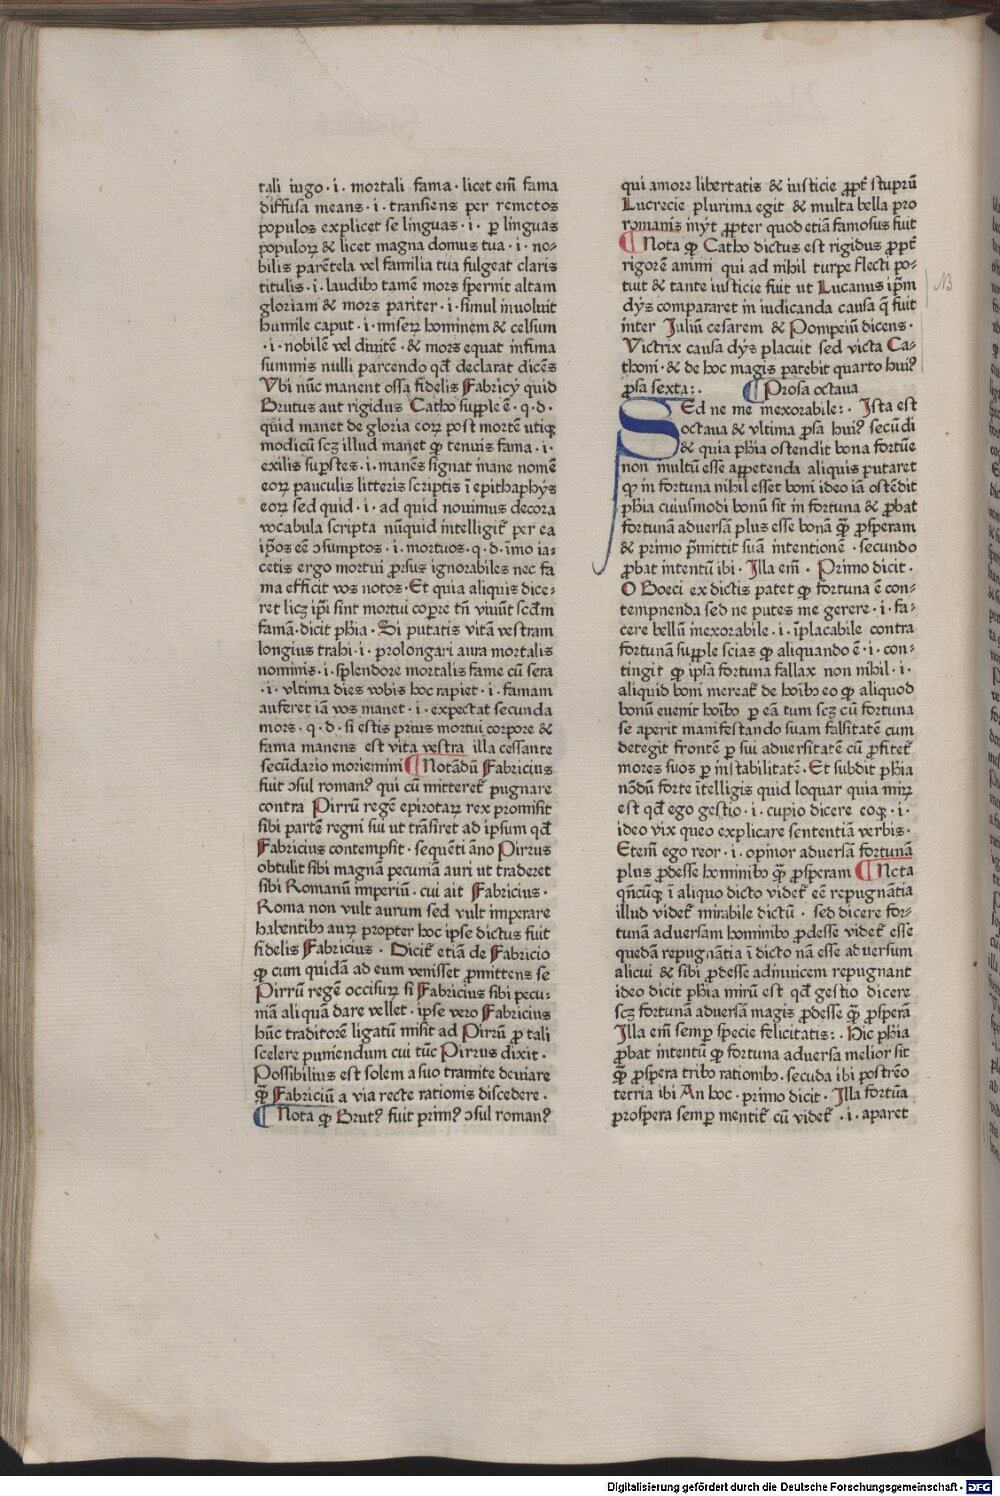 tali iugo · i · mortali fama · licet em̄ fama
diffusa means · i · transiens per remotos
populos explicet se linguas · i · ꝑ linguas
populoꝝ & licet magna domus tua · i · no⸗
bilis parētela vel familia tua fulgeat claris
titulis · i · laudibꝫ tamē mors spernit altam
gloriam & mors pariter · i · simul inuoluit
humile caput · i · miseꝝ hominem & celsum
· i · nobilē vel diuitē · & mors equat infima
summis nulli parcendo qđ declarat dicēs
Vbi nūc manent ossa fidelis Fabricÿ quid
Brutus aut rigidus Catho supple ē · q · d ·
quid manet de gloria eoꝝ post mortē utiqꝫ
modicū scꝫ illud manet ꝙ tenuis fama · i ·
exilis suꝑstes · i · manēs signat inane nomē
eoꝝ pauculis litteris scriptis ī epithaphÿs
eoꝝ sed quid · i · ad quid nouimus decora
vocabula scripta nūquid intelligit᷑ per ea
ip̄os eē ↄsumptos · i · mortuos · q · d · īmo ia⸗
cetis ergo mortui ꝓrsus ignorabiles nec fa
ma efficit vos notos · Et quia aliquis dice⸗
ret licꝫ ip̄i sint mortui coꝑe tn̄ viuūt scd̄m
famā · dicit ph̄ia · Si putatis vitā vestram
longius trahi · i · prolongari aura mortalis
nominis · i · splendore mortalis fame cū sera
· i · vltima dies vobis hoc rapiet · i · famam
auferet iā vos manet · i · expectat secunda
mors · q · d · si estis prius mortui corpore &
fama manens est vita vestra illa cessante
secūdario moriemini ¶ Notādū Fabricius
fuit ↄsul romanꝰ qui cū mitteret᷑ pugnare
contra Pirrū regē epirotaꝝ rex promisit
sibi partē regni sui ut trāsiret ad ipsum qđ
Fabricius contempsit · sequēti āno Pirrus
obtulit sibi magnā pecuniā auri ut traderet
sibi Romanū imperiū · cui ait Fabricius ·
Roma non vult aurum sed vult imperare
habentibꝫ auꝝ propter hoc ipse dictus fuit
fidelis Fabricius · Dicit᷑ etiā de Fabricio
ꝙ cum quidā ad eum venisset ꝓmittens se
Pirrū regē occisuꝝ si Fabricius sibi pecu⸗
niā aliquā dare vellet · ipse vero Fabricius
hūc traditorē ligatū misit ad Pirrū ꝓ tali
scelere puniendum cui tūc Pirrus dixit ·
Possibilius est solem a suo tramite deuiare
q̄ꝫ Fabriciū a via recte rationis discedere ·
¶ Nota ꝙ Brutꝰ fuit primꝰ ↄsul romanꝰ
qui amore libertatis & iusticie ꝓpt᷑ stuprū
Lucrecie plurima egit & multa bella pro
romanis inÿt ꝓpter quod etiā famosus fuit
¶ Nota ꝙ Catho dictus est rigidus ꝓpt᷑
rigorē animi qui ad nihil turpe flecti po⸗
tuit & tante iusticie fuit ut Lucanus ip̄m
dÿs compararet in iudicanda causa q̄ fuit
inter Juliū cesarem & Pompeiū dicens ·
Victrix causa dÿs placuit sed victa Ca⸗
thoni · & de hoc magis patebit quarto huiꝰ
ꝓsa sexta : · ¶ Prosa octaua
SEd ne me inexorabile : · Ista est
octaua & vltima ꝓsa huiꝰ secūdi
& quia ph̄ia ostendit bona fortūe
non multū esse appetenda aliquis putaret
ꝙ in fortuna nihil esset boni ideo iā ostēdit
ph̄ia cuiusmodi bonū sit in fortuna & ꝓbat
fortunā aduersā plus esse bonā q̄ꝫ ꝓsperam
& primo p̄mittit suā intentionē · secundo
ꝓbat intentū ibi · Illa em̄ · Primo dicit ·
O Boeci ex dictis patet ꝙ fortuna ē con⸗
tempnenda sed ne putes me gerere · i · fa⸗
cere bellū inexorabile · i · īplacabile contra
fortunā supple scias ꝙ aliquando ē · i · con⸗
tingit ꝙ ipsa fortuna fallax non nihil · i ·
aliquid boni mereat᷑ de hoībꝫ eo ꝙ aliquod
bonū euenit hoībꝫ ꝑ eā tum scꝫ cū fortuna
se aperit manifestando suam falsitatē cum
detegit frontē ꝑ sui aduersitatē cū ꝓfitet᷑
mores suos ꝑ instabilitatē · Et subdit ph̄ia
nōdū forte ītelligis quid loquar quia miꝝ
est qđ ego gestio · i · cupio dicere eoqꝫ · i ·
ideo vix queo explicare sententiā verbis ·
Etem̄ ego reor · i · opinor aduersā fortunā
plus ꝓdesse hominibꝫ q̄ꝫ ꝓsperam ¶ Nota
qn̄cūqꝫ ī aliquo dicto videt᷑ eē repugnātia
illud videt᷑ mirabile dictū · sed dicere for⸗
tunā aduersam hominibꝫ ꝓdesse videt᷑ esse
quedā repugnātia ī dicto nā esse aduersum
alicui & sibi ꝓdesse adinuicem repugnant
ideo dicit ph̄ia mirū est qđ gestio dicere
scꝫ fortunā aduersā magis ꝓdesse q̄ꝫ ꝓsperā
Illa em̄ semꝑ specie felicitatis : · Hic ph̄ia
ꝓbat intentū ꝙ fortuna aduersa melior sit
q̄ꝫ ꝓspera tribꝫ rationibꝫ · secūda ibi postrēo
tertia ibi An hoc · primo dicit · Illa fortūa
prospera semꝑ mentit᷑ cū videt᷑ · i · aparet
Digitalisierung gefördert durch die Deutsche Forschungsgemeinschaft - DFG